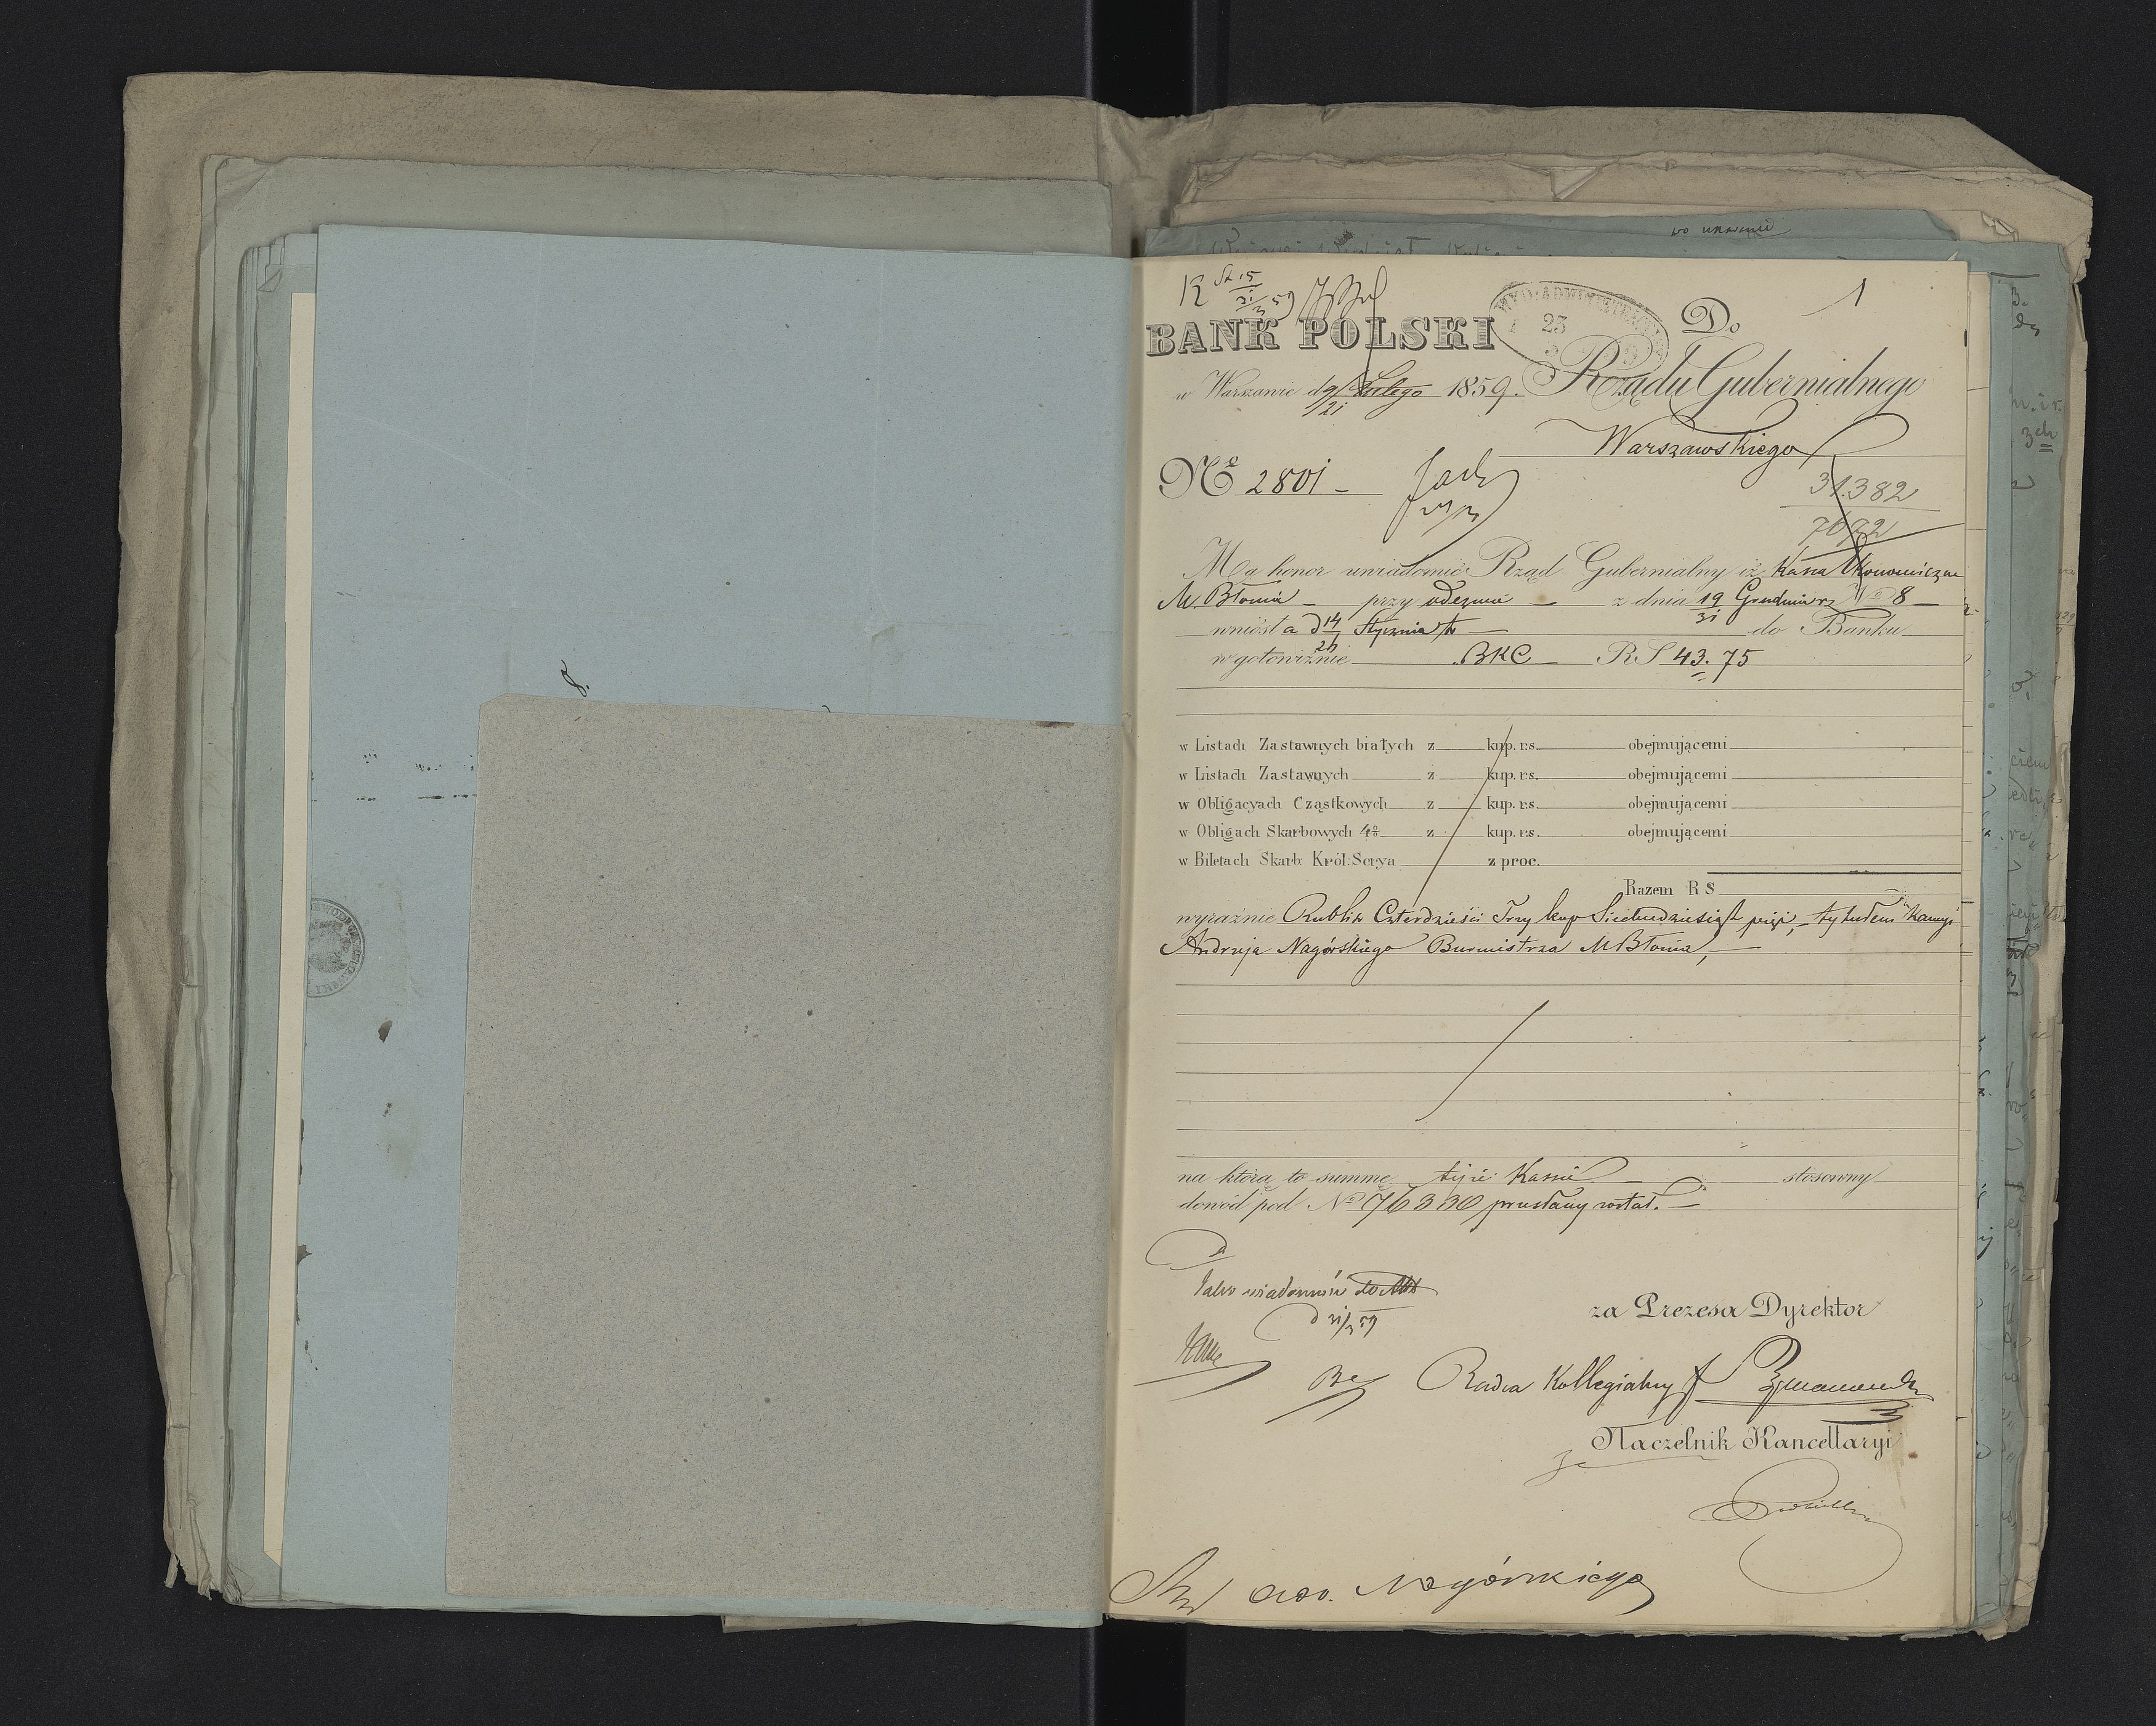 1
BANK POLSKI
w Warszawie d 9/21 Lutego 1859.
Do
Rządu Gubernialnego
Warszawskiego
WYD: ADMINISTRACYJNY
23
№ 2801 –
31.382
7692
Ma honor uwiadomić Rząd Gubernialny iż Kassa Ekonomiczna
M. Błonia – przy odezwie – z dnia 19/31 Grudnia № 8 –
wniosła d 14/26 Stycznia – do Banku
w gotowiźnie BKC – RS 43. 75
w Listach Zastawnych białych z kup. rs. obejmującemi
w Listach Zastawnych z kup. rs. obejmującemi
w Obligacyach Cząstkowych z kup. rs. obejmującemi
w Obligach Skarbowych 4% z kup. rs. obejmującemi
w Biletach Skarb: Król: Serya z proc.
Razem RS
wyraźnie Rubli Czterdzieści Trzy kop Siedmdziesiąt pięć, – tytułem Kaucyi
Andrzeja Nagórskiego Burmistrza M Błonia, –
na którą to summę tejże Kassie – stosowny
dowód pod № 76330 przesłany został. –
Jako wiadomość do Akt
d 31/3 59
za Prezesa Dyrektor
Radca Kollegialny
Naczelnik Kancellaryi
Nagórskiego